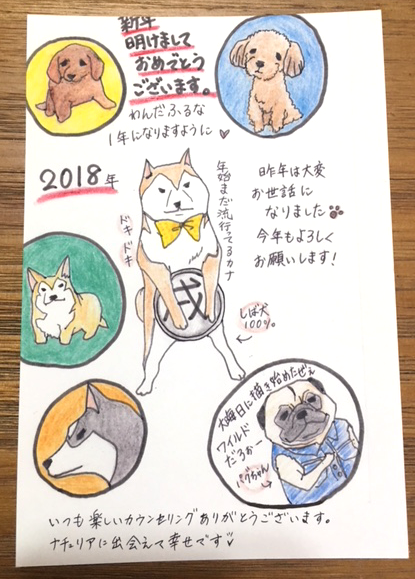 新年
明けまして
おめでとう
ございます。
わんだふるな
1年になりますように
2018年
年始まだ流行ってるカナ
ドキドキ
戌
しば犬
100%。
昨年は大変
お世話に
なりました
今年もよろしく
お願いします!
大晦日に描き始めたぜぇ
ワイルド
だろぉー
パグちゃん
いつも楽しいカウンセリングありがとうございます。
ナチュリアに出会えて幸せです